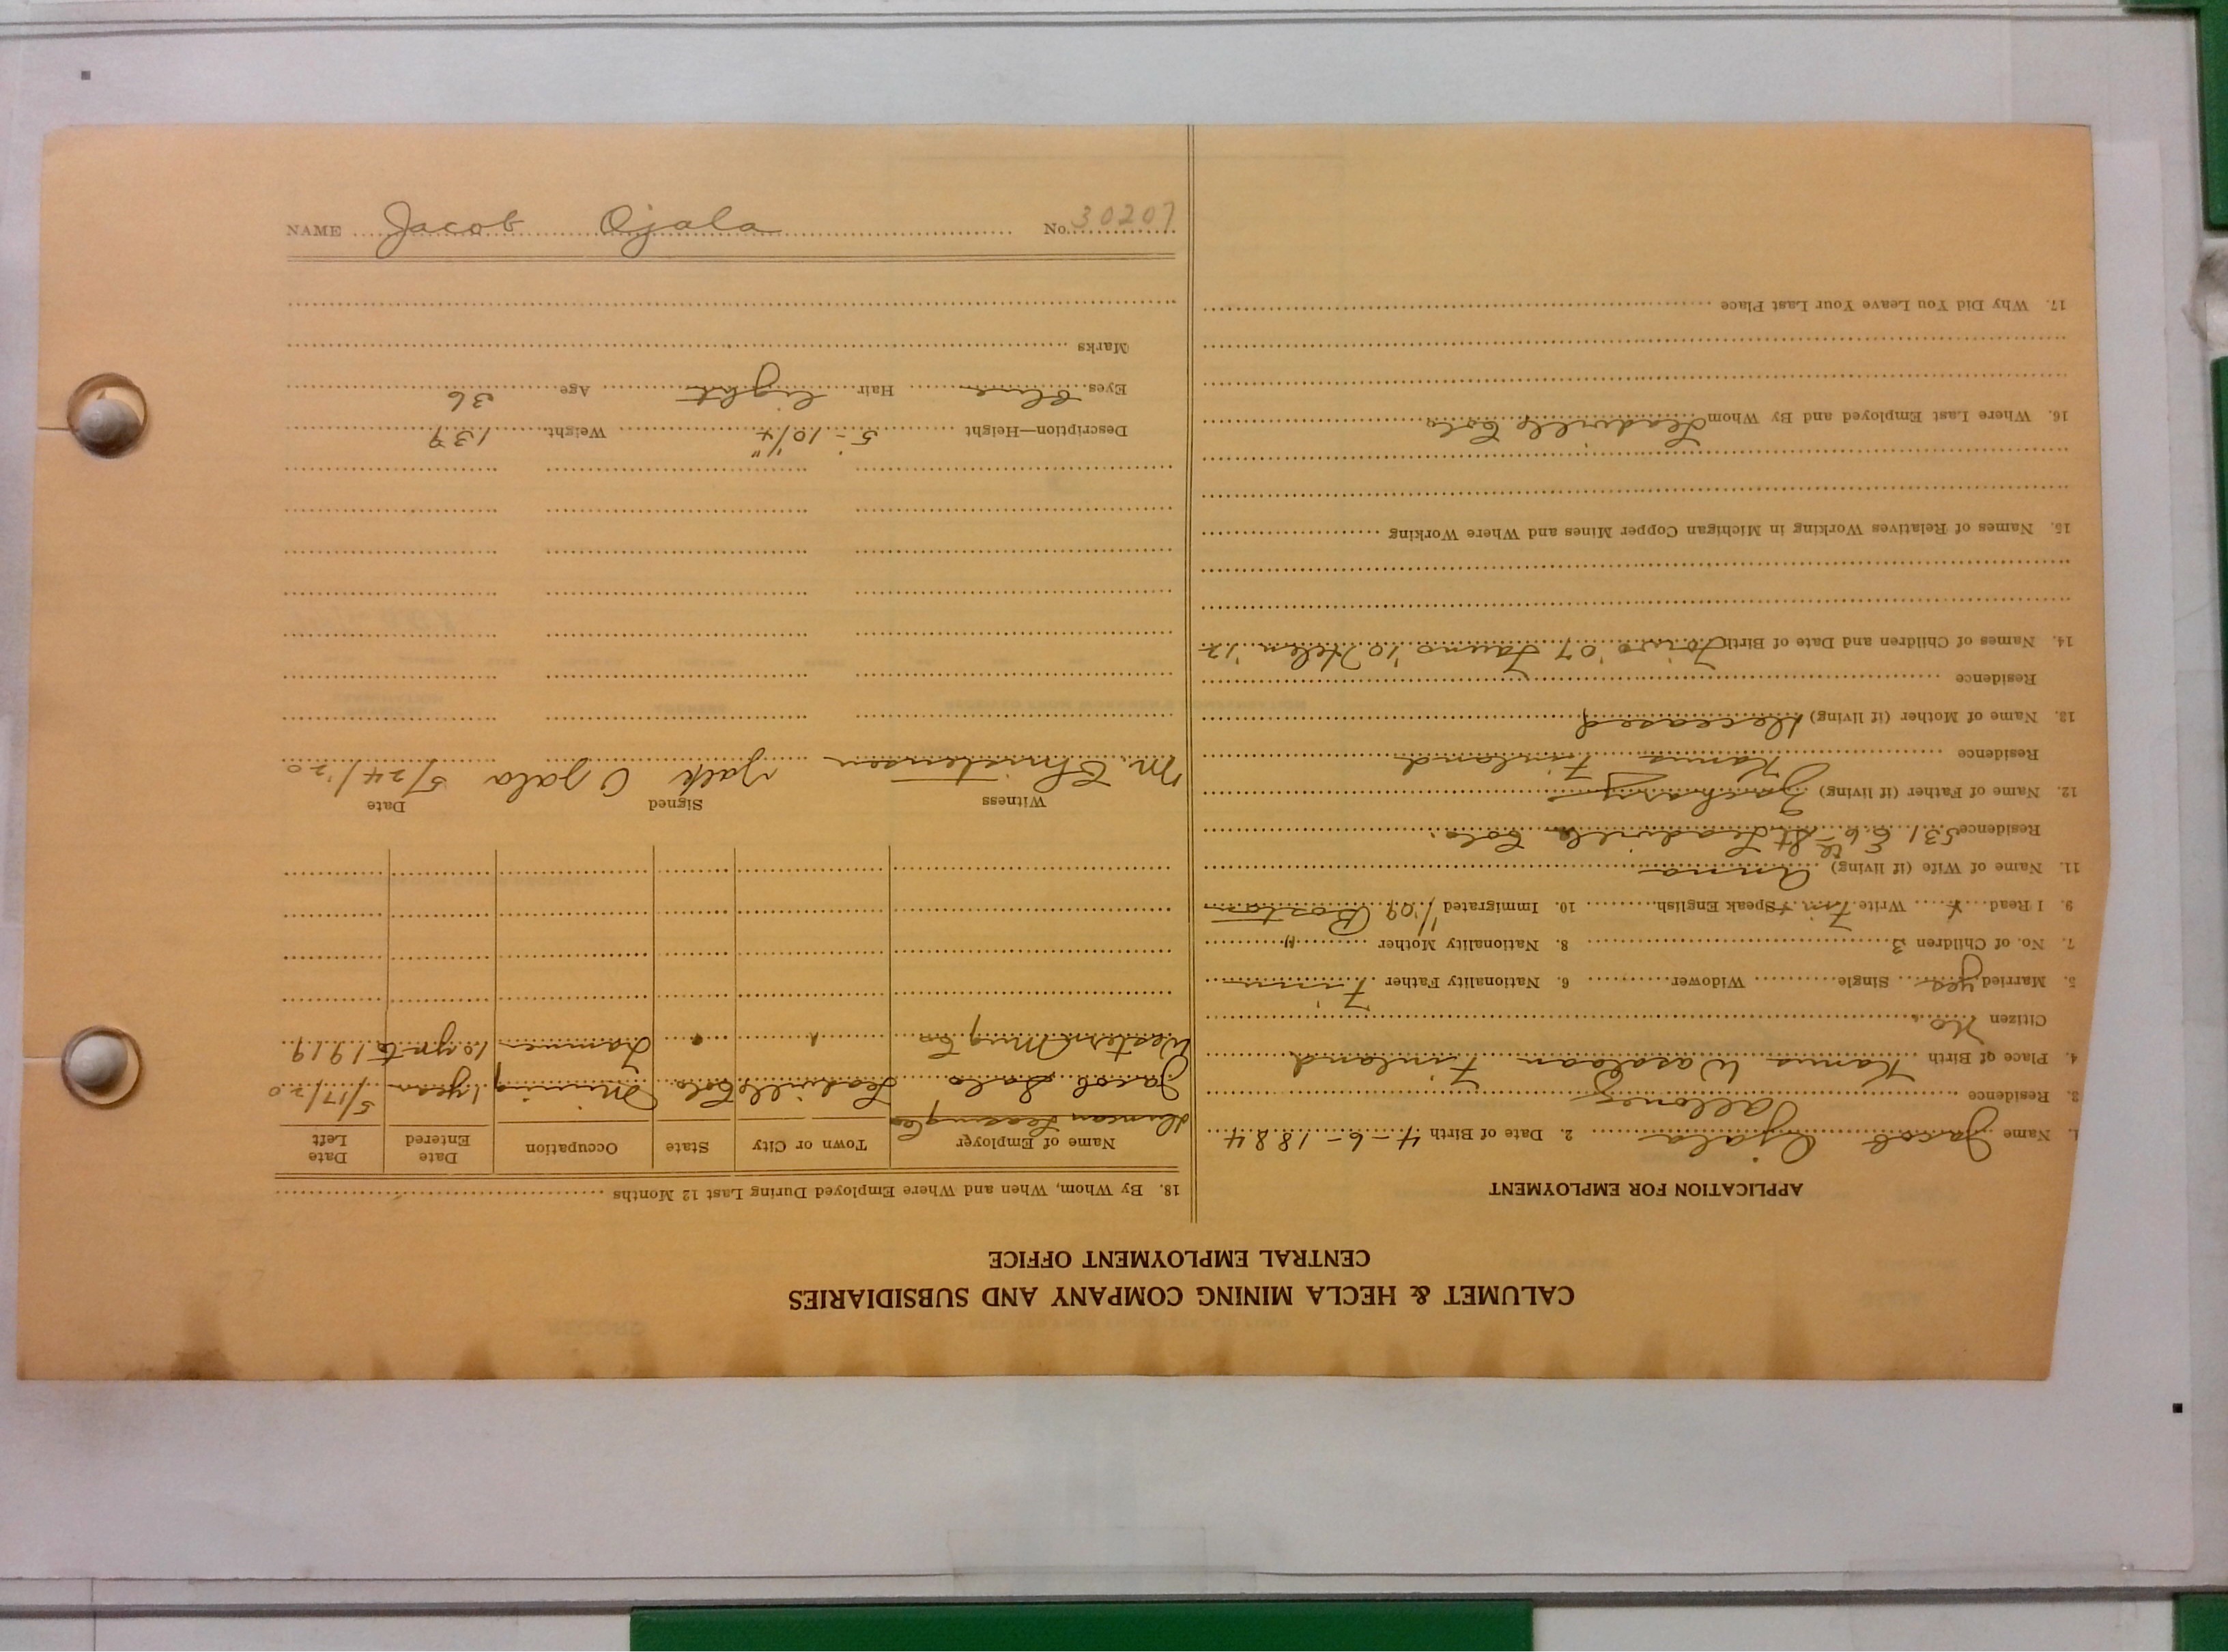 CALUMET & HECLA MINING COMPANY AND SUBSIDIARIES
CENTRAL EMPLOYMENT OFFICE
APPLICATION FOR EMPLOYMENT
1. Name Jacob Ojala 2. Date of Birth 4-6-1884
3. Residence
4. Place of Birth Kanus Wasaloan Finland
Citizen No.
5. Married yes Single Widower 6. Nationality Father Finn
7. No. of Children 3 8. Nationality Mother "
9. I Read Write Finn Speak English 10. Immigrated '09 Boston
11. Name of Wife (if living) Anna
Residence 531 E 6th St Leadville Colo.
12. Name of Father (if living) Zachary
Residence Kanus Finland
13. Name of Mother (if living) Deceased
Residence
14. Names of Children and Date of Birth Toivo '07 Tauno '10 Helen '12
15. Names of Relatives Working in Michigan Copper Mines and Where Working
16. Where Last Employed and By Whom Leadville Colo
17. Why Did You Leave Your Last Place
18. By Whom, When and Where Employed During Last 12 Months
Name of Employer Town or City State Occupation Date Entered Date Left
Jacob Sala Leadville Colo Mining 1 year 5/17/20
Western Mng Co " " 1919
Witness Signed Date
M. Christensen Jalk Ojala 5/24/20
Description—Height 5-10 1/4" Weight 139
Eyes blue Hair light Age 36
Marks
NAME Jacob Ojala No. 30207